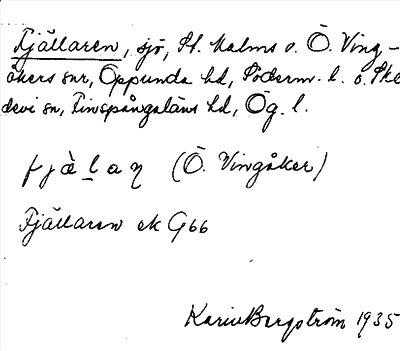 Fjällaren, sjö, St. Malms o. Ö. Ving-
åkers snr, Oppunda hd, Söderm. l. o. Ske
devi sn, Finspångaläns hd, Ög. l.
fjàlaη (Ö. Vingåker)
Fjällaren ek G66
Karin Bergström 1935